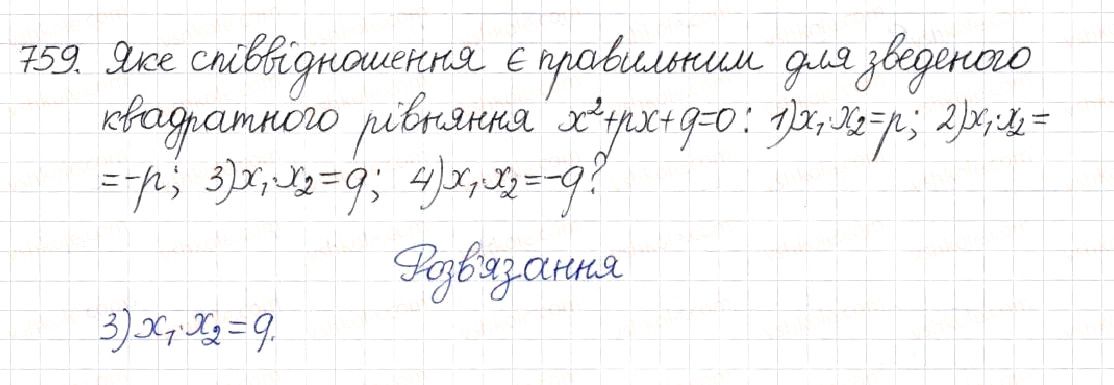 759. Яке співвідношення є правильним для зведеного
квадратного рівняння x²+px+q=0: 1)x₁·x₂=p; 2)x₁·x₂=
=-p; 3)x₁·x₂=q; 4)x₁·x₂=-q?
Розв'язання
3)x₁·x₂=q.